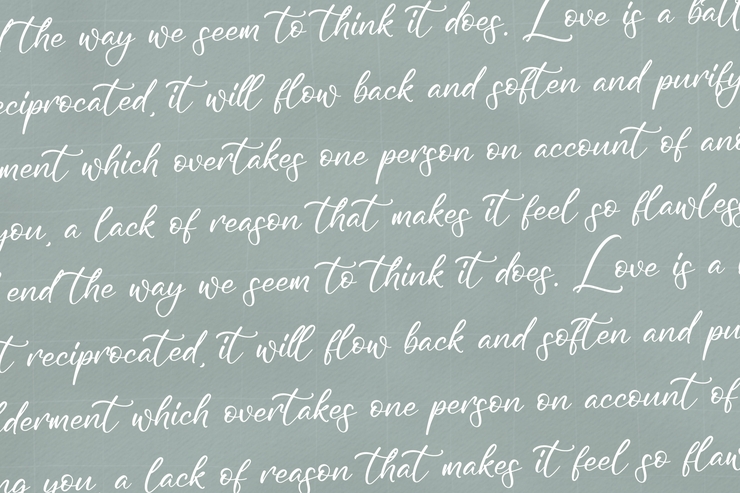 the way we seem to think it does. Love is a
reciprocated, it will flow back and soften and purify
which overtakes one person on account of
you, a lack of reason that makes it feel so flawless
end the way we seem to think it does. Love is a
reciprocated, it will flow back and soften and
which overtakes one person on account of
you, a lack of reason that makes it feel so